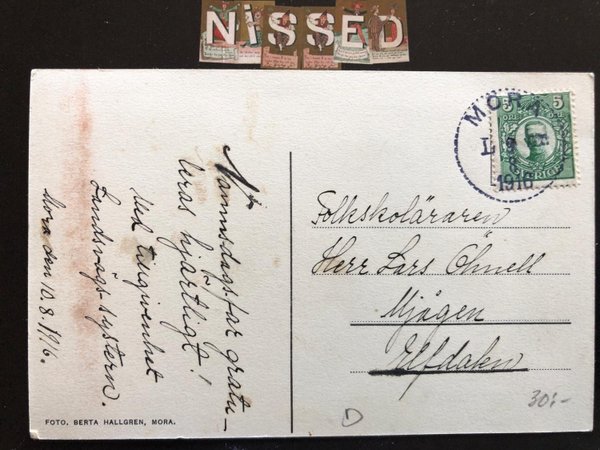 NiSSED
MORA
1916
5
5
Namnsdagsfar gratu-
leras hjärtligt!
Med tillgivenhet
Landsvägs-systern.
Mora den 10.8.1916.
Folkskoläraren
Herr Lars Öhnell
Mjågen
Elfdalen
30:-
D
FOTO. BERTA HALLGREN, MORA.